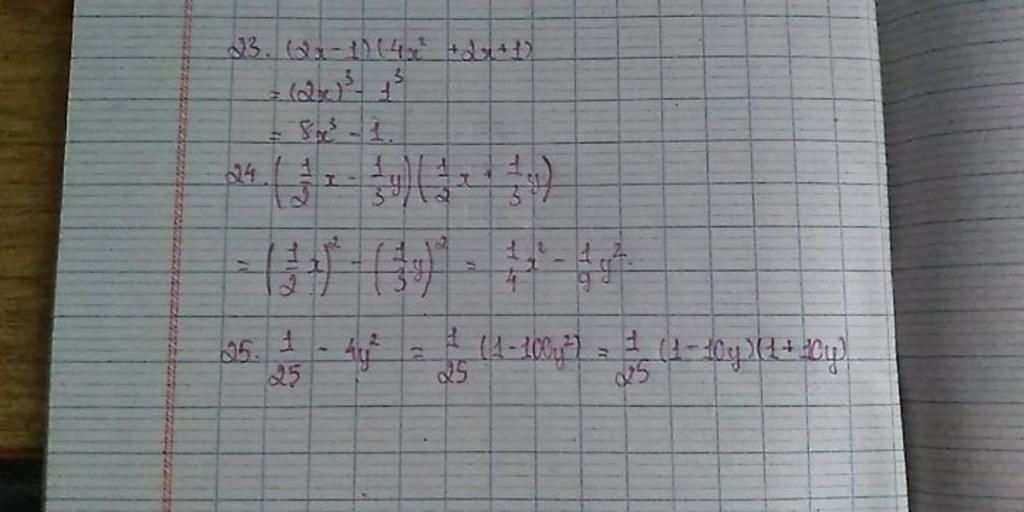 23. (2x - 1)(4x² + 2x + 1)
= (2x)³ - 1³
= 8x³ - 1.
24. (1/2 x - 1/3 y)(1/2 x + 1/3 y)
= (1/2 x)² - (1/3 y)² = 1/4 x² - 1/9 y².
25. 1/25 - 4y² = 1/25 (1 - 100y²) = 1/25 (1 - 10y)(1 + 10y)